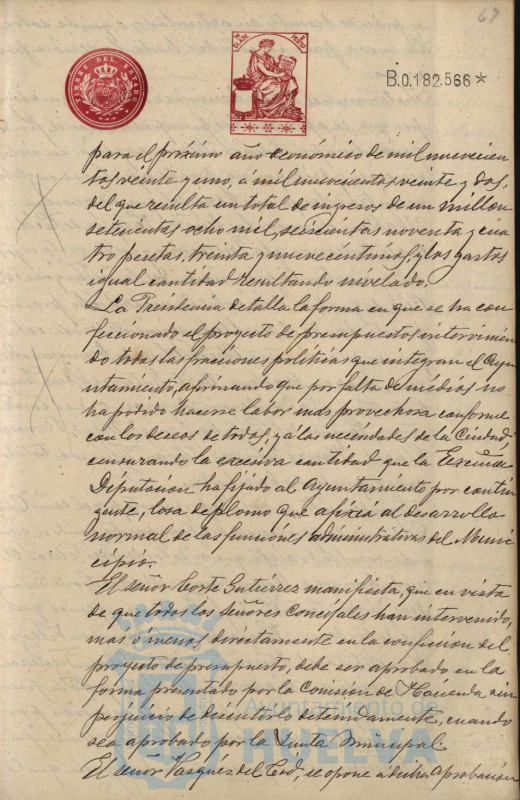 67
TIMBRE DEL ESTADO
B.0.182.566*
para el próximo año económico de mil nuevecien
tos veinte y uno, á mil nuevecientos veinte y dos,
del que resulta un total de ingresos de un millon
setecientas ocho mil, seiscientas noventa y cua
tro pesetas, treinta y nueve centimos, y los gastos
igual cantidad resultando nivelado.
La Presidencia detalla la forma en que se ha con
feccionado el proyecto de presupuestos intervinien
do todas las fracciones politicas que integran el Ayun
tamiento, afirmando que por falta de medios no
ha podido hacerse labor mas provechosa conforme
con los deseos de todos, y á las necesidades de la Ciudad
censurando la excesiva cantidad que la Excma
Diputacion ha fijado al Ayuntamiento por contin
gente, losa de plomo que afixia al desarrollo
normal de las funciones administrativas del Muni
cipio.
El señor Corte Gutiérrez manifiesta, que en vista
de que todos los señores Concejales han intervenido,
mas ó menos directamente en la confeccion del
proyecto de presupuesto, debe ser aprobado en la
forma presentado por la Comisión de Hacienda sin
perjuicio de discutirlo detenidamente, cuando
sea aprobado por la Junta Municipal
El señor Vasquez del Cid, se opone a dicha aprobación
Ayuntamiento de
HUELVA